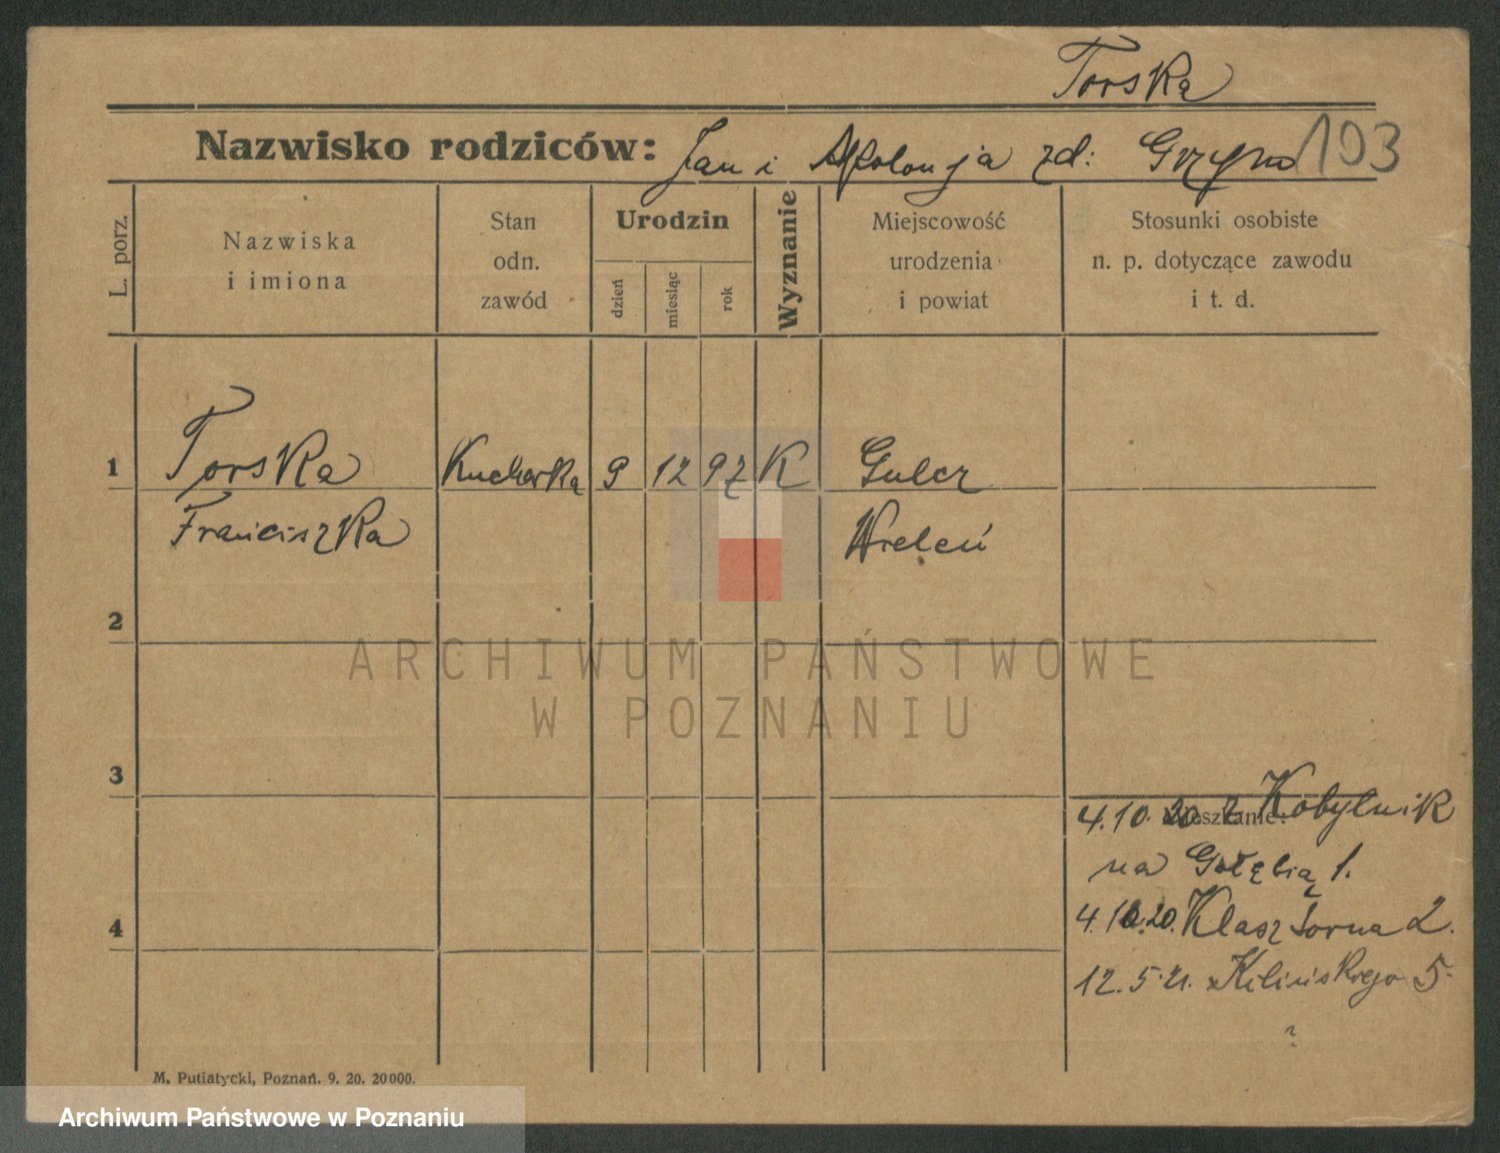 Torska
Nazwisko rodziców: Jan i Apolonja zd: Grzyno 103
L. porz.
Nazwiska
i imiona
Stan
odn.
zawód
Urodzin
dzień
miesiąc
rok
Wyznanie
Miejscowość
urodzenia
i powiat
Stosunki osobiste
n. p. dotyczące zawodu
i t. d.
1 Torska Kucharka 9 12 97 K Gulcz
Franciszka Wieleń
2
ARCHIWUM PAŃSTWOWE
W POZNANIU
3
Mieszkanie:
4.10.20 z Kobylnik
na Gołębią 1.
4
4.10.20. Klasztorna 2.
12.5.21. Kilińskiego 5.
?
M. Putiatycki, Poznań. 9. 20. 20000.
Archiwum Państwowe w Poznaniu